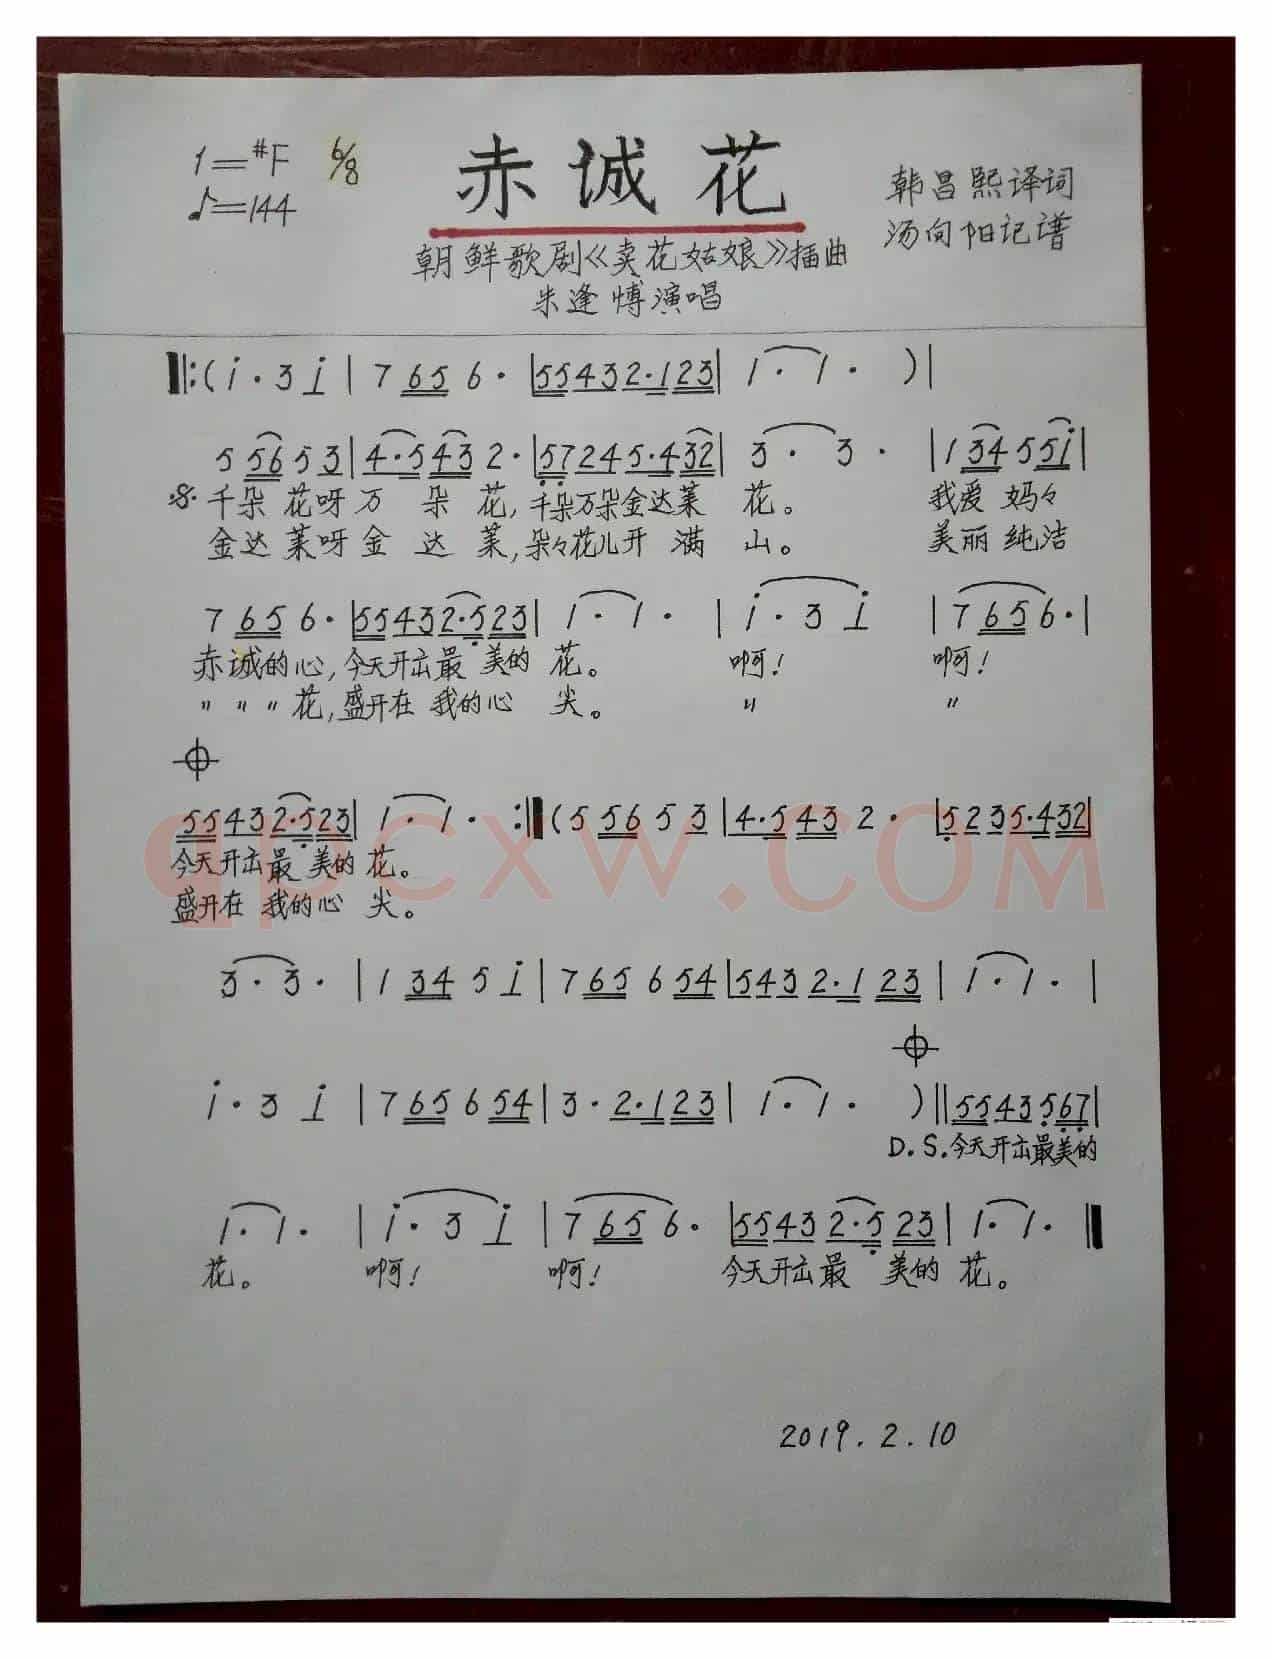 1=#F 6/8
♪=144
赤诚花
韩昌熙译词
汤向阳记谱
朝鲜歌剧《卖花姑娘》插曲
朱逢博演唱
‖:(i·3 i | 7 65 6· | 55432·123 | 1·1· )|
5 56 5 3 | 4·5 43 2· | 57245·432 | 3· 3· | 1 34 5 5i |
千朵花呀万朵花,千朵万朵金达莱花。 我爱妈々
金达莱呀金达莱,朵々花儿开满山。 美丽纯洁
7 65 6· | 55432·523 | 1·1· | i·3 i | 7 65 6· |
赤诚的心,今天开出最美的花。 啊! 啊!
〃 〃 〃花,盛开在我的心尖。 〃 〃
55432·523 | 1·1· :‖ (5 56 5 3 | 4·5 43 2· | 5 2 35·432 |
今天开出最美的花。
盛开在我的心尖。
qpcxw.COM
3·3· | 1 34 5 i | 7 65 6 54 | 543 2·1 23 | 1·1· |
i·3 i | 7 65 6 54 | 3·2·1 23 | 1·1· )‖ 5543567 |
D.S.今天开出最美的
1·1· | i·3 i | 7 65 6· | 5543 2·5 23 | 1·1· ‖
花。 啊! 啊! 今天开出最美的花。
2019.2.10